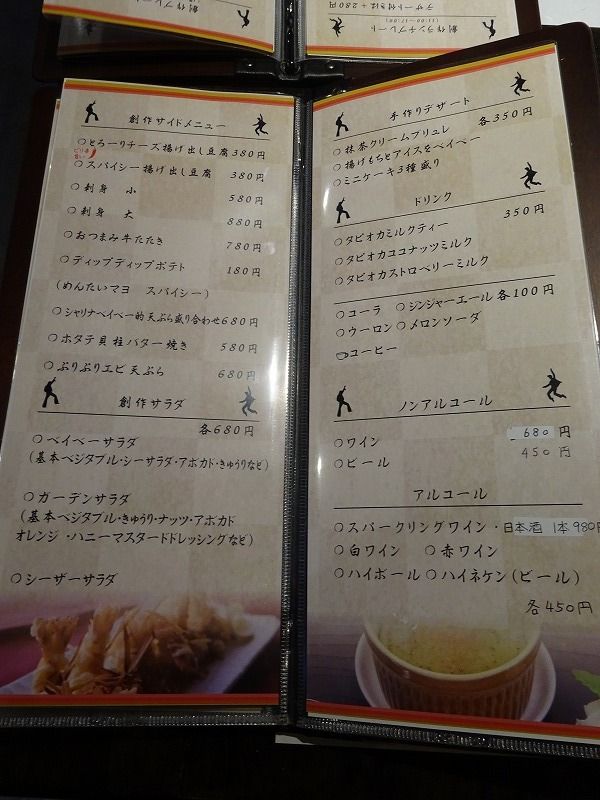 創作プレート
創作ランチプレート
(11:00〜17:00)
デザート付きは+280円
創作サイドメニュー
○とろーりチーズ揚げ出し豆腐 380円
○スパイシー揚げ出し豆腐 380円
○刺身 小 580円
○刺身 大 880円
○おつまみ牛たたき 780円
○ディップディップポテト 180円
(めんたいマヨ スパイシー)
○シャリナベイベー的天ぷら盛り合わせ680円
○ホタテ貝柱バター焼き 580円
○ぷりぷりエビ天ぷら 680円
創作サラダ
各680円
○ベイベーサラダ
(基本ベジタブル・シーサラダ・アボカド・きゅうりなど)
○ガーデンサラダ
(基本ベジタブル・きゅうり・ナッツ・アボカド
オレンジ・ハニーマスタードドレッシングなど)
○シーザーサラダ
手作りデザート
各350円
○抹茶クリームブリュレ
○揚げもちとアイスをベイベー
○ミニケーキ3種盛り
ドリンク
350円
○タピオカミルクティー
○タピオカココナッツミルク
○タピオカストロベリーミルク
○コーラ ○ジンジャーエール 各100円
○ウーロン ○メロンソーダ
コーヒー
ノンアルコール
○ワイン 680円
○ビール 450円
アルコール
○スパークリングワイン・日本酒 1本980円
○白ワイン ○赤ワイン
○ハイボール ○ハイネケン(ビール)
各450円